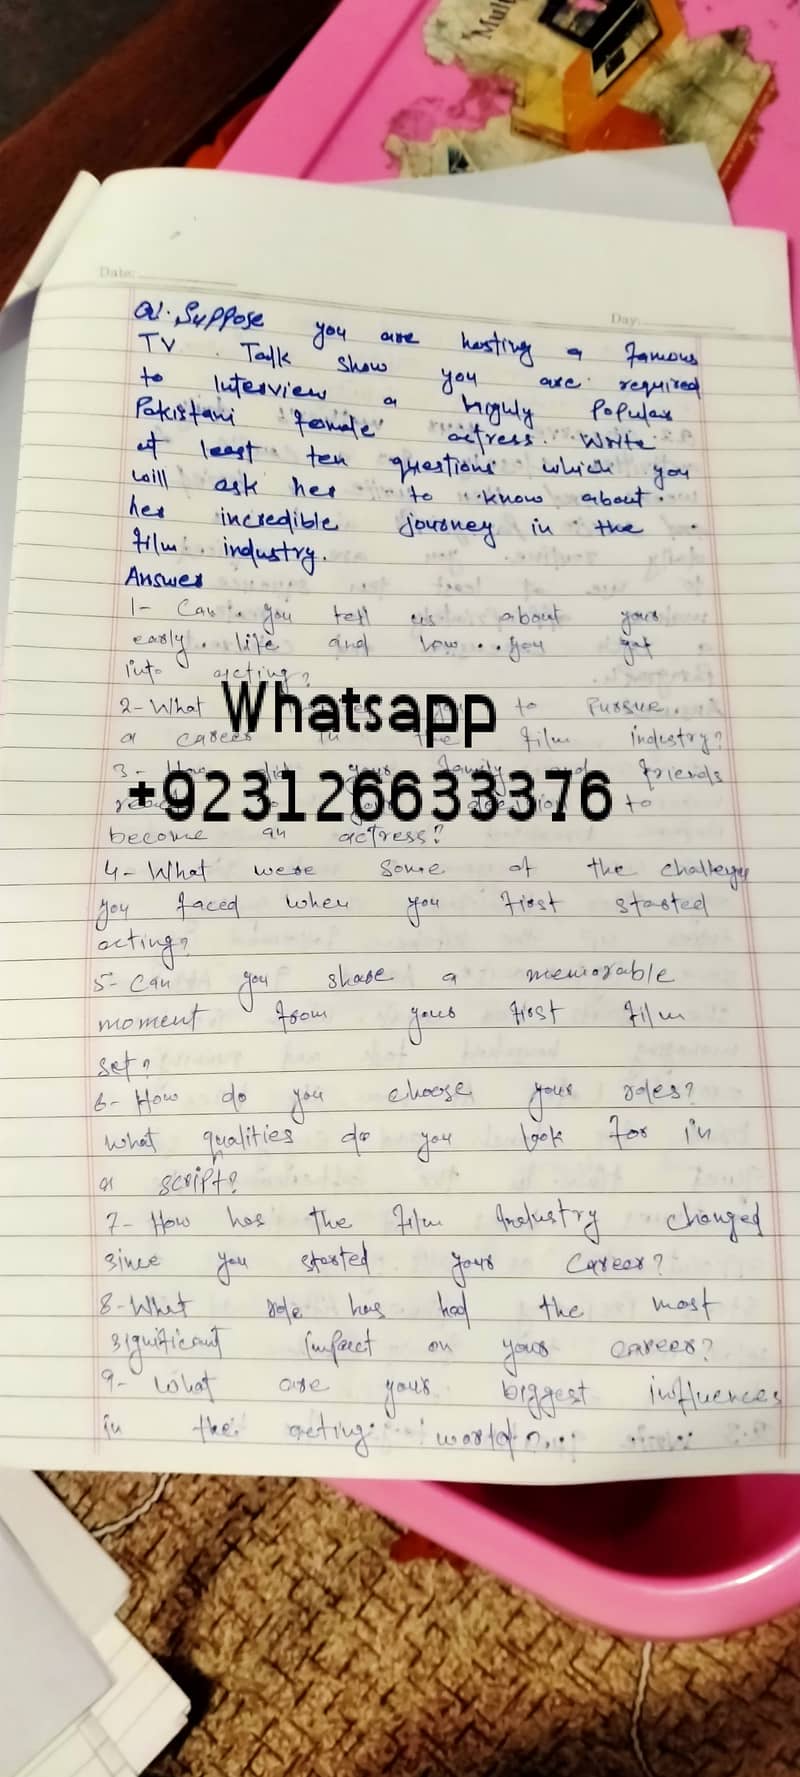 Mult
Date:
Day:
Q1. Suppose you are hosting a famous
TV Talk show you are required
to Interview a highly Popular
Pakistani female actress. Write
at least ten questions which you
will ask her to know about
her incredible journey in the
film industry.
Answer
1- Can you tell us about your
early life and how you got
into acting?
2- What you to Pursue
a career in the film industry?
3- How did your family and friends
to your decision to
become an actress?
4- What were some of the challeges
you faced when you first started
acting?
5- Can you share a memorable
moment from your first film
set?
6- How do you choose your roles?
What qualities do you look for in
a script?
7- How has the film Industry changed
since you started your career?
8- What role has had the most
significant impact on your career?
9- What are your biggest influences
in the acting world?
Whatsapp
+923126633376